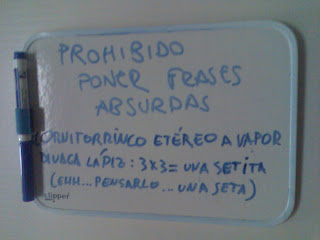 PROHIBIDO
PONER FRASES
ABSURDAS
ORNITORRINCO ETÉREO A VAPOR
DIVAGA LÁPIZ: 3X3= UNA SETITA
(EHH... PENSARLO... UNA SETA)